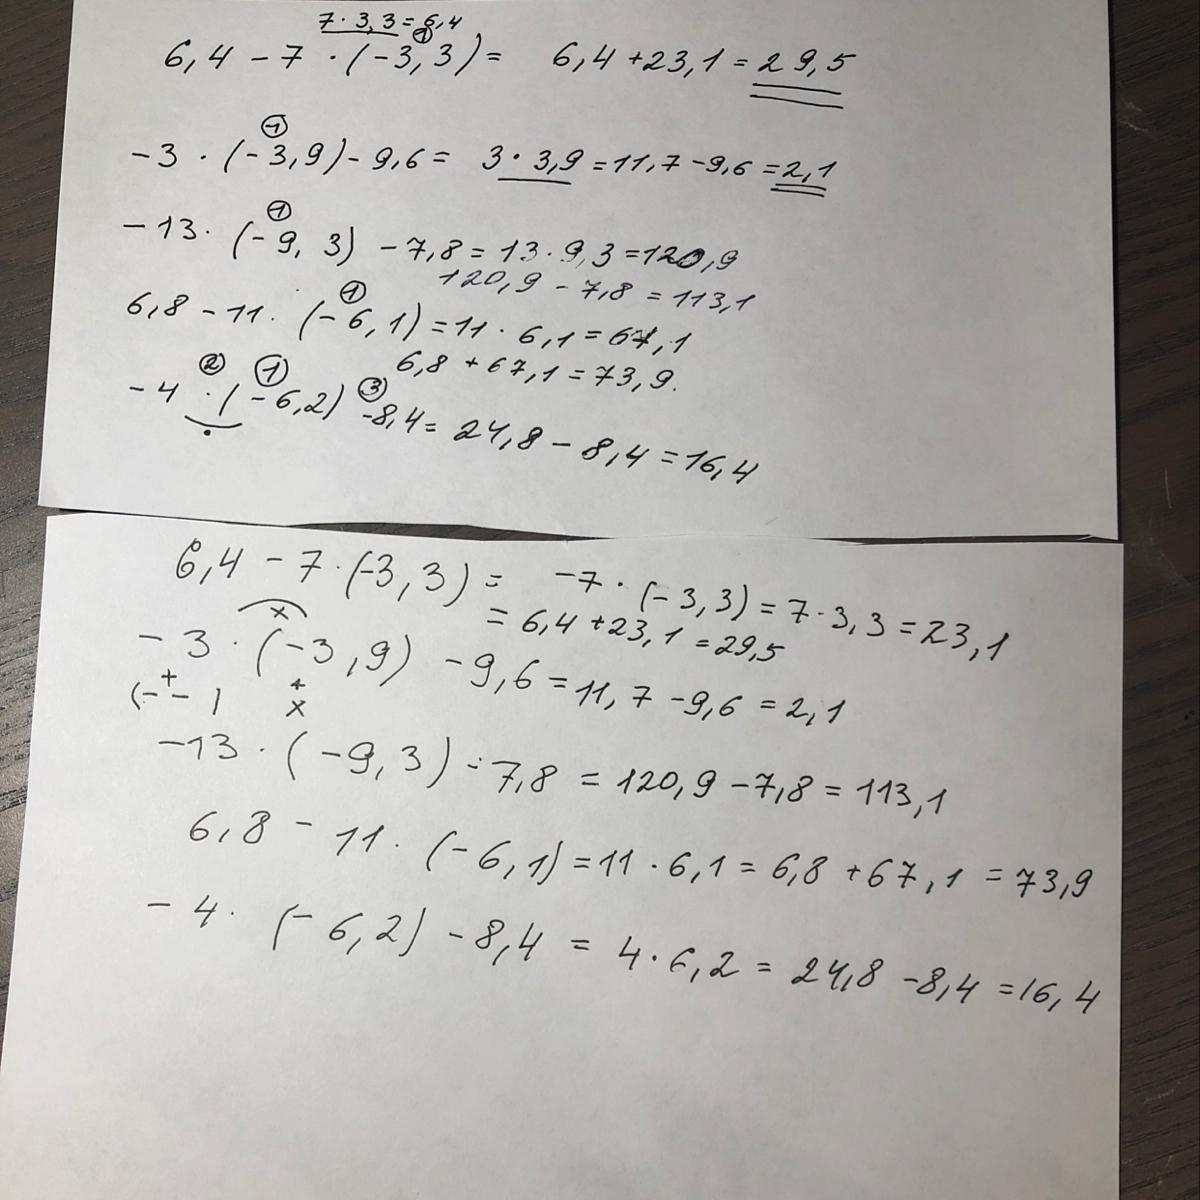 7 · 3,3 = 6,4
6,4 - 7 · (-3,3) = 6,4 + 23,1 = 29,5
-3 · (-3,9) - 9,6 = 3 · 3,9 = 11,7 - 9,6 = 2,1
-13 · (-9,3) - 7,8 = 13 · 9,3 = 120,9
120,9 - 7,8 = 113,1
6,8 - 11 · (-6,1) = 11 · 6,1 = 67,1
6,8 + 67,1 = 73,9.
-4 · (-6,2) - 8,4 = 24,8 - 8,4 = 16,4
6,4 - 7 · (-3,3) = -7 · (-3,3) = 7 · 3,3 = 23,1
= 6,4 + 23,1 = 29,5
-3 · (-3,9) - 9,6 = 11,7 - 9,6 = 2,1
-13 · (-9,3) - 7,8 = 120,9 - 7,8 = 113,1
6,8 - 11 · (-6,1) = 11 · 6,1 = 6,8 + 67,1 = 73,9
-4 · (-6,2) - 8,4 = 4 · 6,2 = 24,8 - 8,4 = 16,4